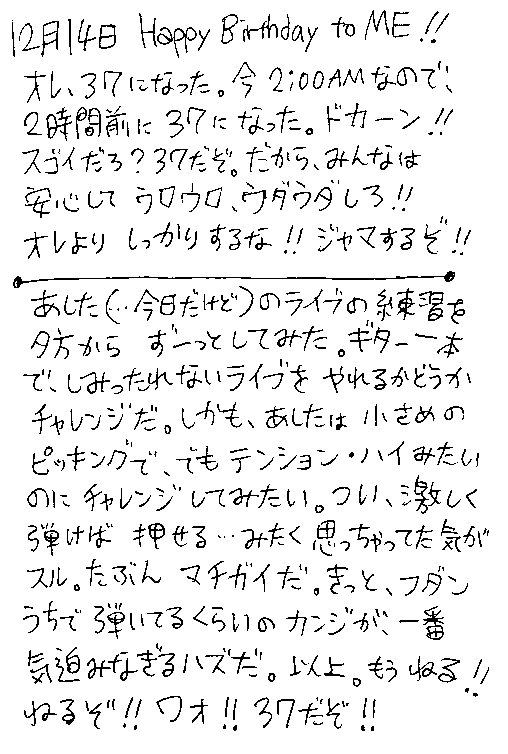 12月14日 Happy Birthday to ME!!
オレ、37になった。今 2:00AMなので、
2時間前に 37になった。ドカーン!!
スゴイだろ?37だぞ。だから、みんなは
安心して ウロウロ、ウダウダしろ!!
オレより しっかりするな!! ジャマするぞ!!
あした(…今日だけど)のライブの練習を
夕方から ずーっとしてみた。ギター一本
で、しみったれないライブを やれるかどうか
チャレンジだ。しかも、あしたは 小さめの
ピッキングで、でも テンション・ハイみたい
のに チャレンジしてみたい。つい、激しく
弾けば 押せる…みたく 思っちゃってた気が
スル。たぶん マチガイだ。きっと、フダン
うちで 弾いてるくらいの カンジが、一番
気迫みなぎるハズだ。以上。もう ねる!!
ねるぞ!! ワオ!! 37だぞ!!